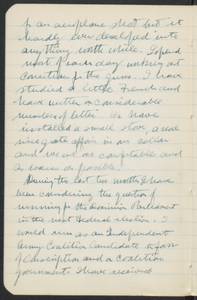 for an aeroplane shot but it
hardly ever developed into
anything worth while. I spend
most of each day working out
correction for the guns. I have
studied a little French and
have written a considerable
number of letters. We have
installed a small stove, a real
nice quiet affair in our cellar
and we are as comfortable and
as warm as possible.
During the last two months I have
been considering the question of
running for the Dominion Parliament
in the next Federal election. I
would run as an Independent
Army Coalition Candidate in favor
of Conscription and a Coalition
government. I have received